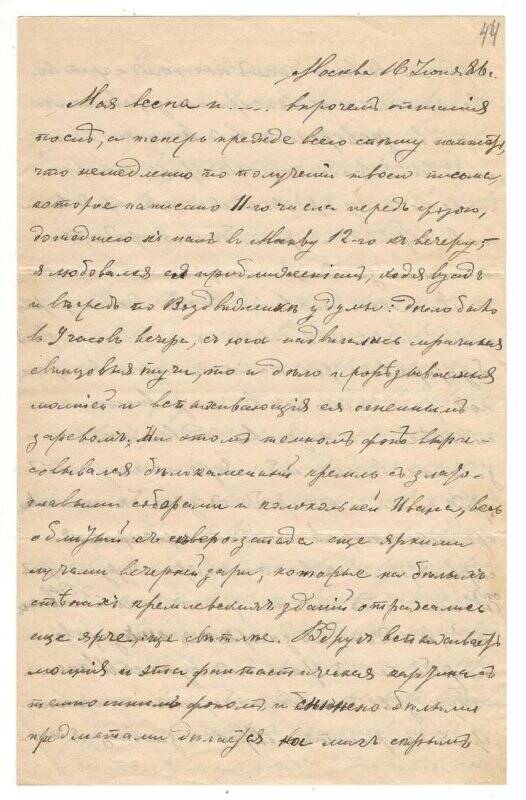 44
Москва 16 Іюня 86 г.
Моя весна и ..... впрочемъ
послѣ, а теперь прежде всего спѣшу
что немедленно по полученіи твоего письма,
которое написано 11-го числа передъ грозою,
дошедшего къ намъ въ Москву 12-го къ вечеру,
я любовался ея приближеніемъ, ходя взадъ
и впередъ по Воздвиженкѣ у думы: дѣло было
въ 9 часовъ вечера, съ юга надвигались мрачныя
свинцовыя тучи, то и дѣло прорѣзываемыя
молніей и вспыхивающія ея огненнымъ
заревомъ. На этомъ темномъ фонѣ выри-
совывался бѣлокаменный кремль съ злато-
главыми соборами и колокольней Ивана, весь
облитый съ сѣверо-запада еще яркими
лучами вечерней зари, которые на бѣлыхъ
стѣнахъ кремлевскихъ зданій отражались
еще ярче, еще свѣтлѣе. Вдругъ вспыхиваетъ
молнія и эта фантастическая картина съ
темносинимъ фономъ и снѣжно бѣлыми
предметами дѣлается на мигъ